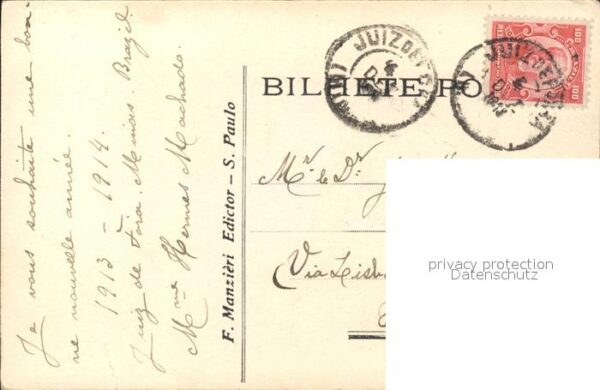 BILHETE PO
100 100
JUIZ DE FORA
JUIZ DE FORA
Je vous souhaite une bon-
ne nouvelle année.
1913 - 1914.
Juiz de Fora. Minas. Brazil.
Mme Hermes Machado.
F. Manzièri Edictor – S. Paulo
Mr. le Dr.
Via Lisb
privacy protection
Datenschutz